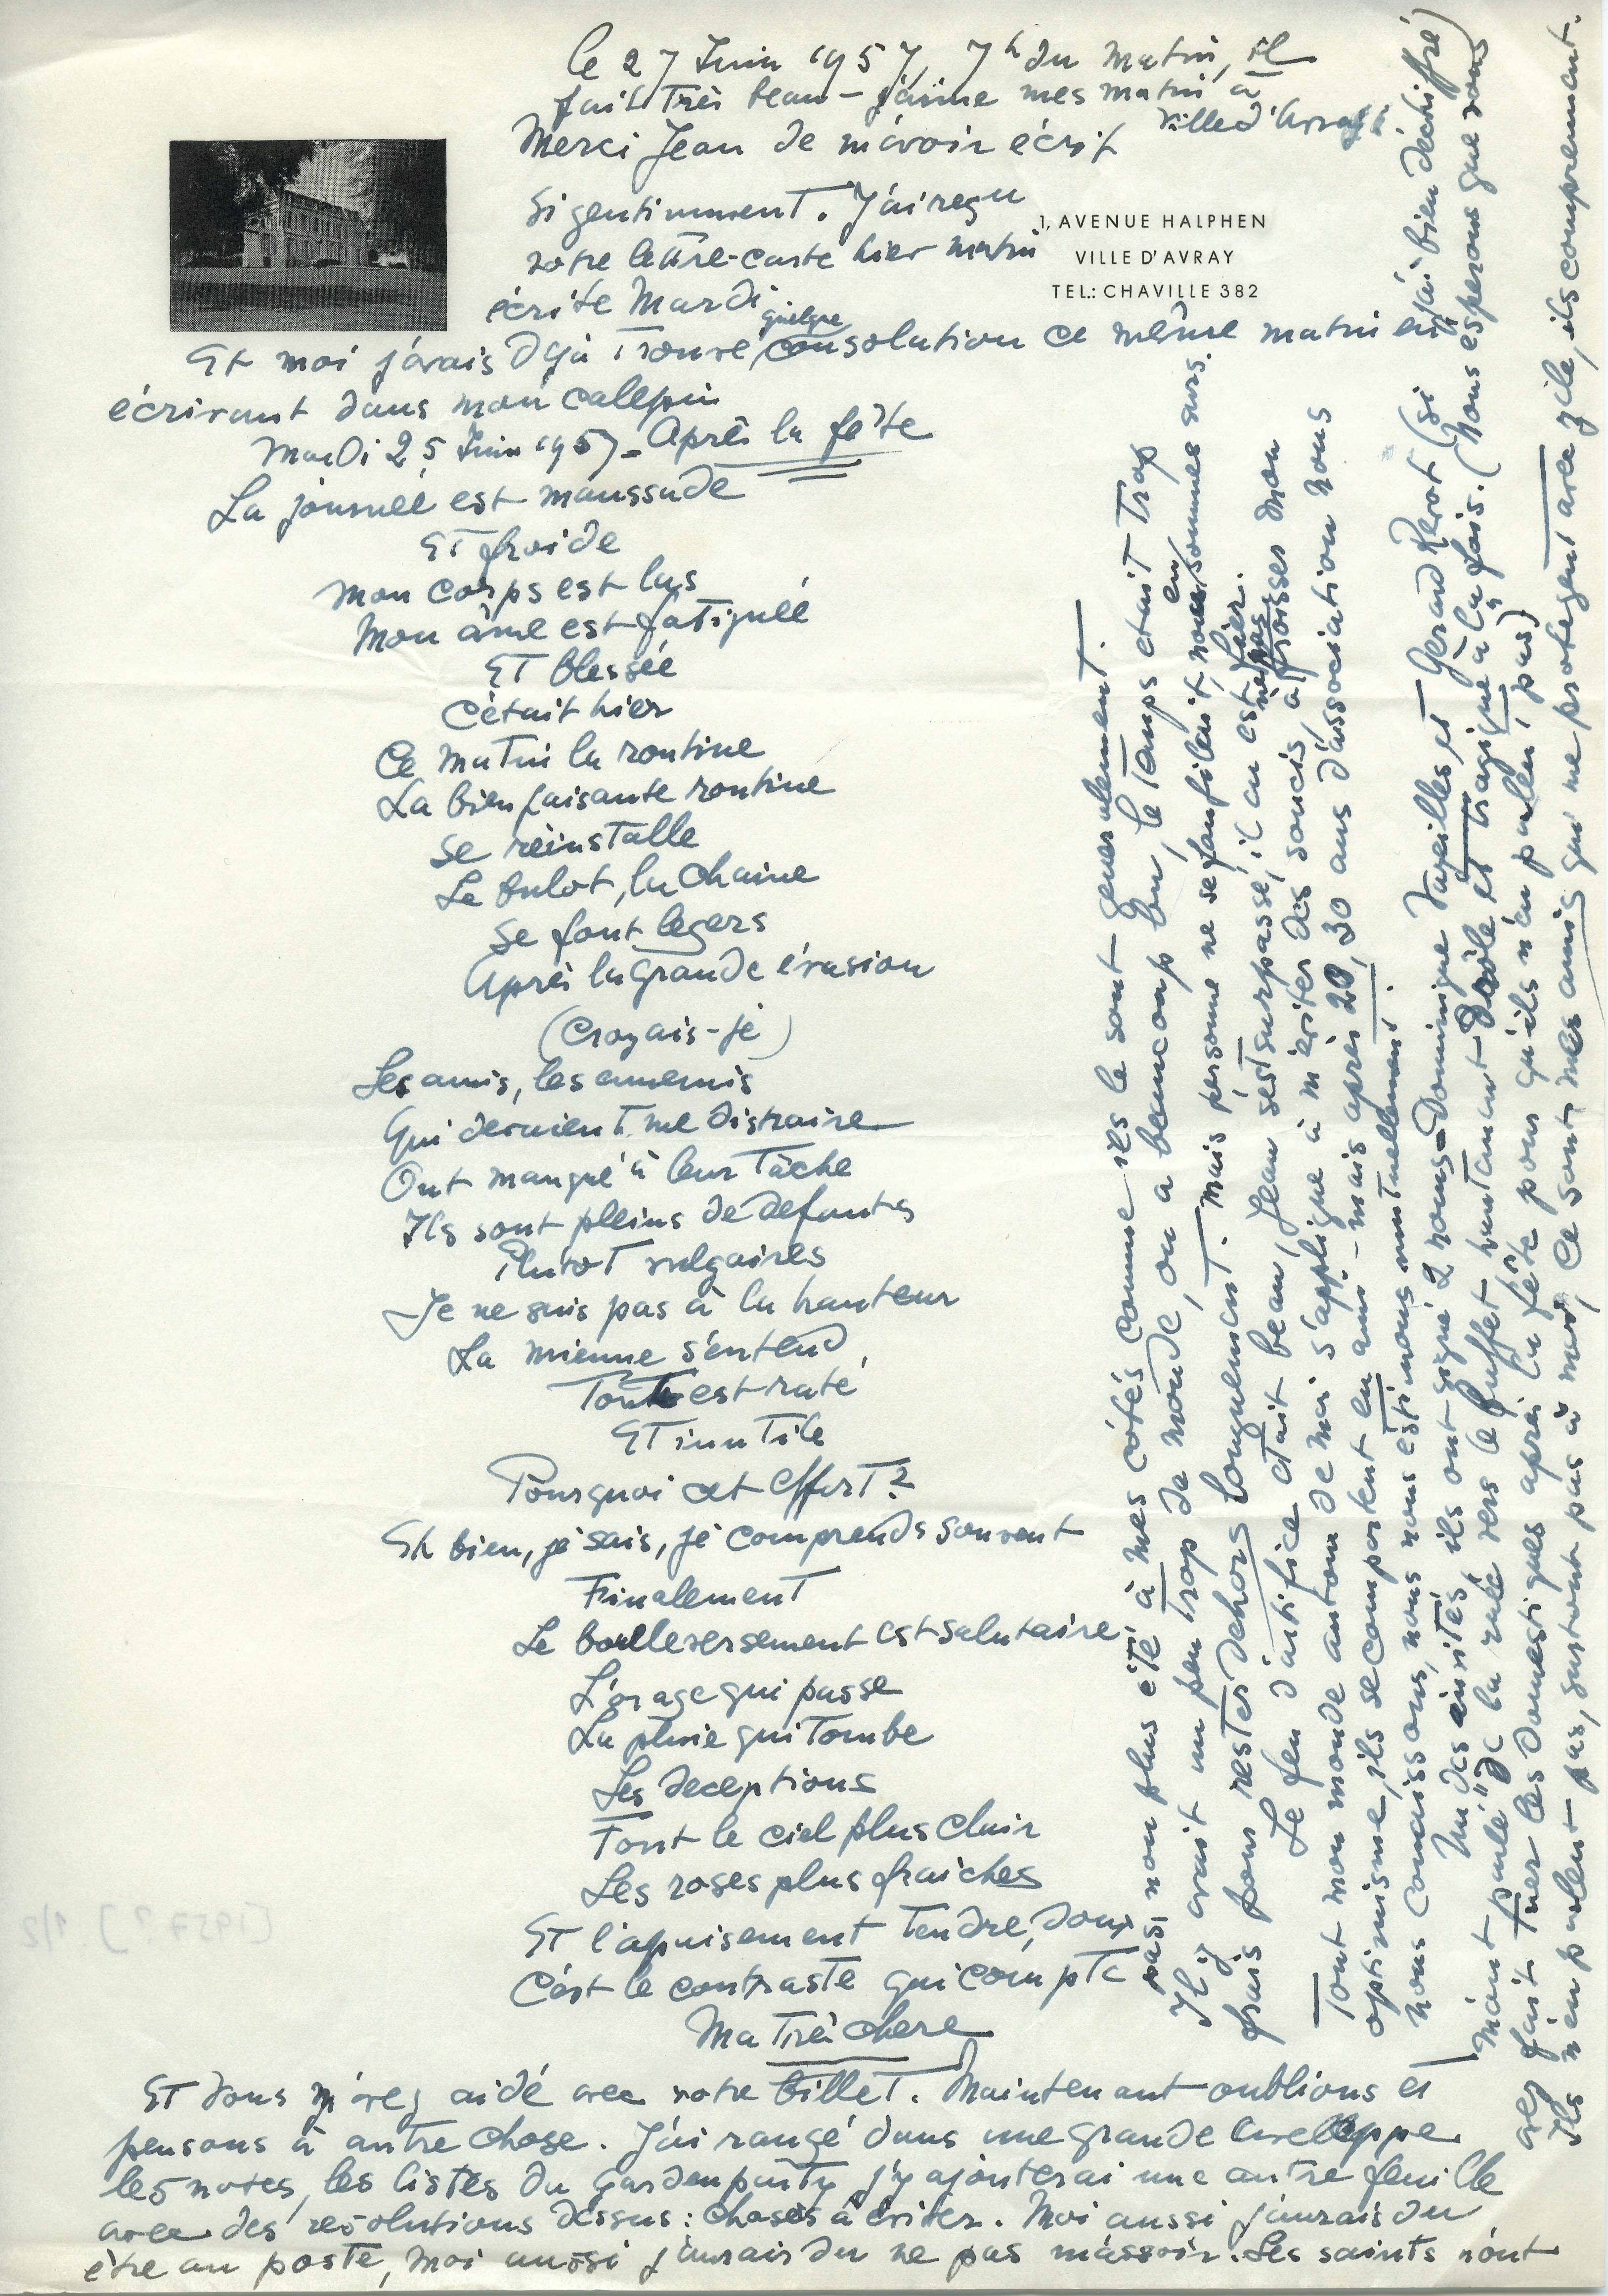 le 27 Juin 1957, 7h du matin, il
fait très beau - j'aime mes matin à
Ville d'Avray
Merci Jean de m'avoir écrit
si gentimment. J'ai reçu
1, AVENUE HALPHEN
VILLE D'AVRAY
TEL.: CHAVILLE 382
votre lettre-carte hier matin
écrite Mardi
Et moi j'avais déjà trouvé quelque consolution ce même matin en
écrivant dans mon calepin
Mardi 25 Juin 1957 - Après la fête
La journée est maussade
Et froide
Mon corps est las
Mon âme est fatiguée
Et blessée
C'était hier
Ce matin la routine
La bienfaisante routine
Se réinstalle
Le bulot, la chaine
Se font legers
Après la grande évasion
(Croyais-je)
Les amis, les ennemis
Qui devaient me distraire
Ont manqué à leur tâche
Ils sont pleins de defauts
Plutôt vulgaires
Je ne suis pas à la hauteur
La mienne s'entend,
Tout est raté
Et inutile
Pourquoi cet effort?
Eh bien, je sais, je comprends souvent
Finalement
Le boulleversement est salutaire
L'orage qui passe
La pluie qui tombe
Les deceptions
Font le ciel plus clair
Les roses plus fraiches
Et l'apuisement tendre, doux
C'est le contraste qui compte
Ma très chere
Et vous m'avez aidé avec votre billet. Maintenant oublions et
pensons à autre chose. J'ai rangé dans une grande envelloppe
les notes, les listes du gardenparty j'y ajouterai une autre feuille
avec des résolutions dessus: choses à éviter. Moi aussi j'aurais du
être au poste, moi aussi j'aurais du ne pas m'assoir. Les saints n'ont
pas non plus été à mes cotés comme ils le sont generalement.
Il y avait un peu trop de monde, on a beaucoup bu, le temps etait trop
frais pour rester dehors longuement. Mais personne ne se faufilait, nous en sommes surs.
Le feu d'artifice etait beau, Jean s'est surpassé, il en est fier.
Tout mon monde autour de moi s'applique à m'eviter des soucis, à ne pas froisser mon
optimisme, ils se comportent en ami - mais après 20, 30 ans d'association nous
nous connaissons, nous nous estimons mutuellement.
Un des invités, ils ont signé 2 noms - Dominique Vazeilles et Gerard Revot (si j'ai bien déchiffré)
m'ont parlé "de la ruée vers le buffet" racontant drôle et tragique à la fois. (Nous esperons que vous
avez fait tuer les domestiques après la fête pour qu'ils n'en parlent pas)
Ils n'en parlent pas, surtout pas à moi, ce sont mes amis qui me protegent avec zèle, ils comprennent.